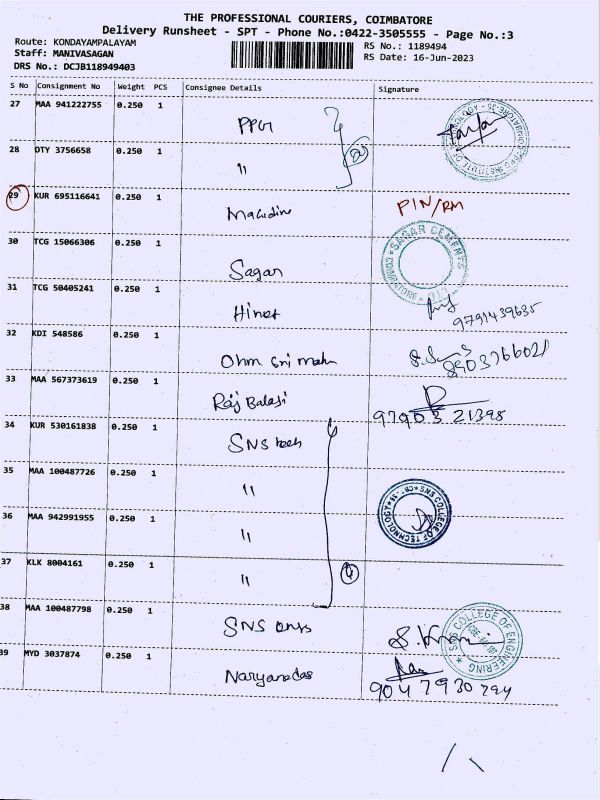 THE PROFESSIONAL COURIERS, COIMBATORE
Delivery Runsheet - SPT - Phone No.:0422-3505555 - Page No.:3
Route: KONDAYAMPALAYAM
RS No.: 1189494
Staff: MANIVASAGAN
RS Date: 16-Jun-2023
DRS No.: DCJB118949403
S No Consignment No Weight PCS Consignee Details Signature
27 MAA 941222755 0.250 1 PPG
28 DTY 3756658 0.250 1 "
2
29 KUR 695116641 0.250 1 PIN/RM
30 TCG 15066306 0.250 1 Sagar
SAGAR CEMENTS
COIMBATORE
31 TCG 50405241 0.250 1 Hines
9791439635
32 KDI 548586 0.250 1 Ohm Sri
8903766021
33 MAA 567373619 0.250 1 Raj Balaji
97903 21398
34 KUR 530161838 0.250 1 SNS tech
35 MAA 100487726 0.250 1 "
SNS COLLEGE OF TECHNOLOGY
36 MAA 942991955 0.250 1 "
37 KLK 8004161 0.250 1 "
4
38 MAA 100487798 0.250 1 SNS
SNS COLLEGE OF ENGINEERING
39 MYD 3037874 0.250 1 Naryanadas
9047930294